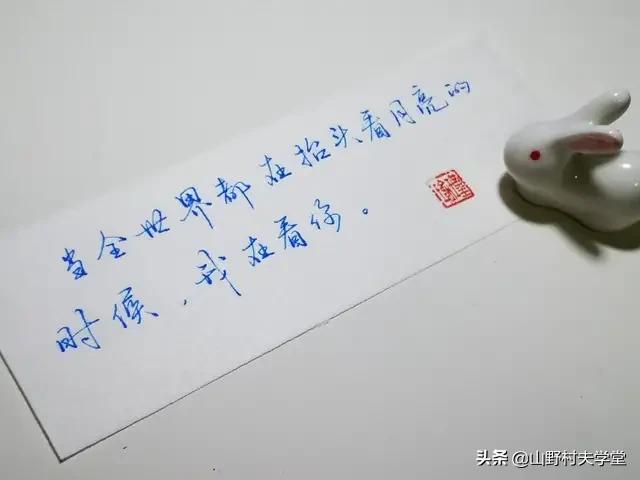 当全世界都在抬头看月亮的
时候，我在看你。
头条 @山野村夫学堂